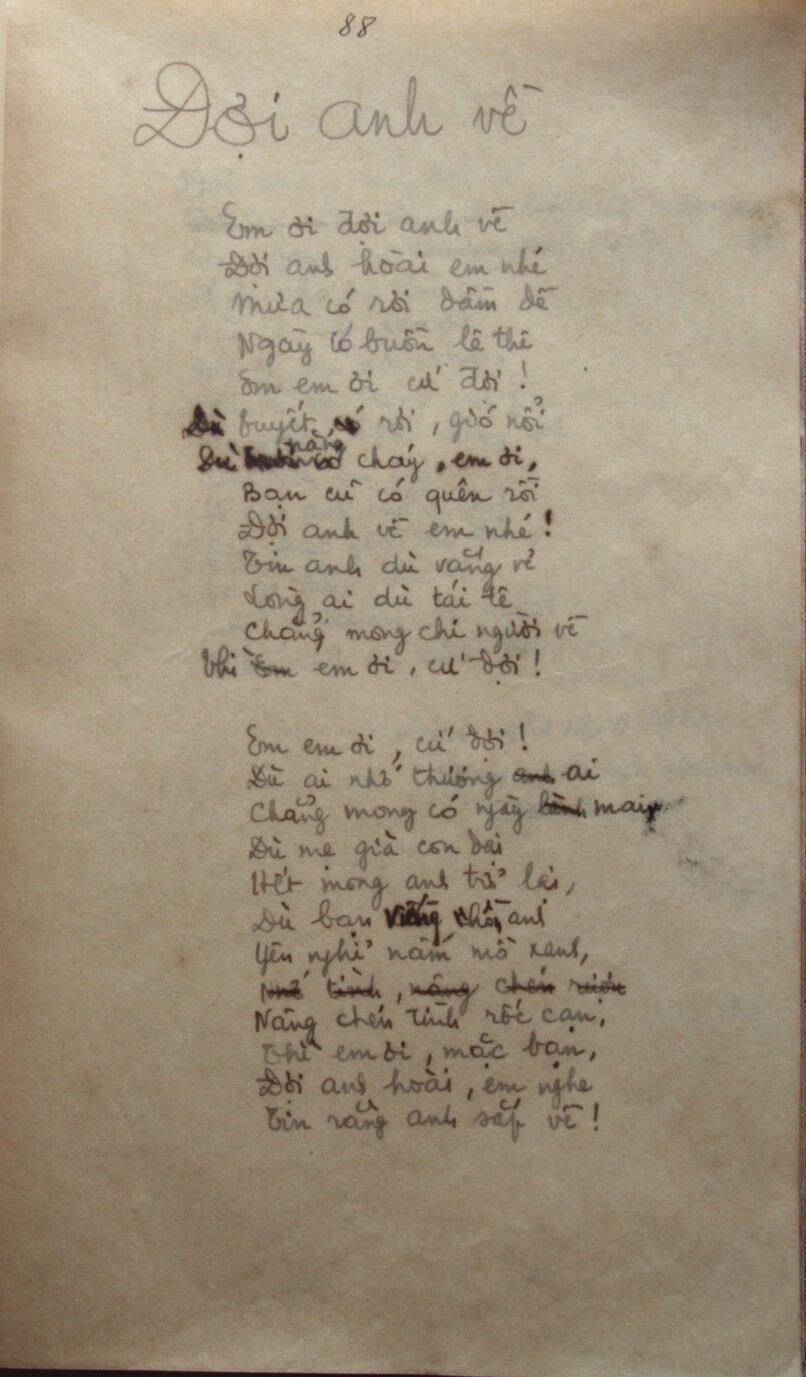 88
Đợi anh về
Em ơi đợi anh về
Đợi anh hoài em nhé
Mưa có rơi dầm dề
Ngày có buồn lê thê
Em em ơi cứ đợi !
Dù tuyết rơi, gió nổi
Dù nắng cháy, em ơi,
Bạn cũ có quên rồi
Đợi anh về em nhé !
Tin anh dù vắng vẻ
Lòng ai dù tái tê
Chẳng mong chi người về
Thì Em em ơi, cứ đợi !
Em em ơi, cứ đợi !
Dù ai nhớ thương anh ai
Chẳng mong có ngày mai,
Dù mẹ già con dại
Hết mong anh trở lại,
Dù bạn viếng hồn anh
Yên nghỉ nấm mồ xanh,
Nhớ tình, nâng chén rượu
Nâng chén tình rốc cạn,
Thì em ơi, mặc bạn,
Đợi anh hoài, em nghe
Tin rằng anh sắp về !